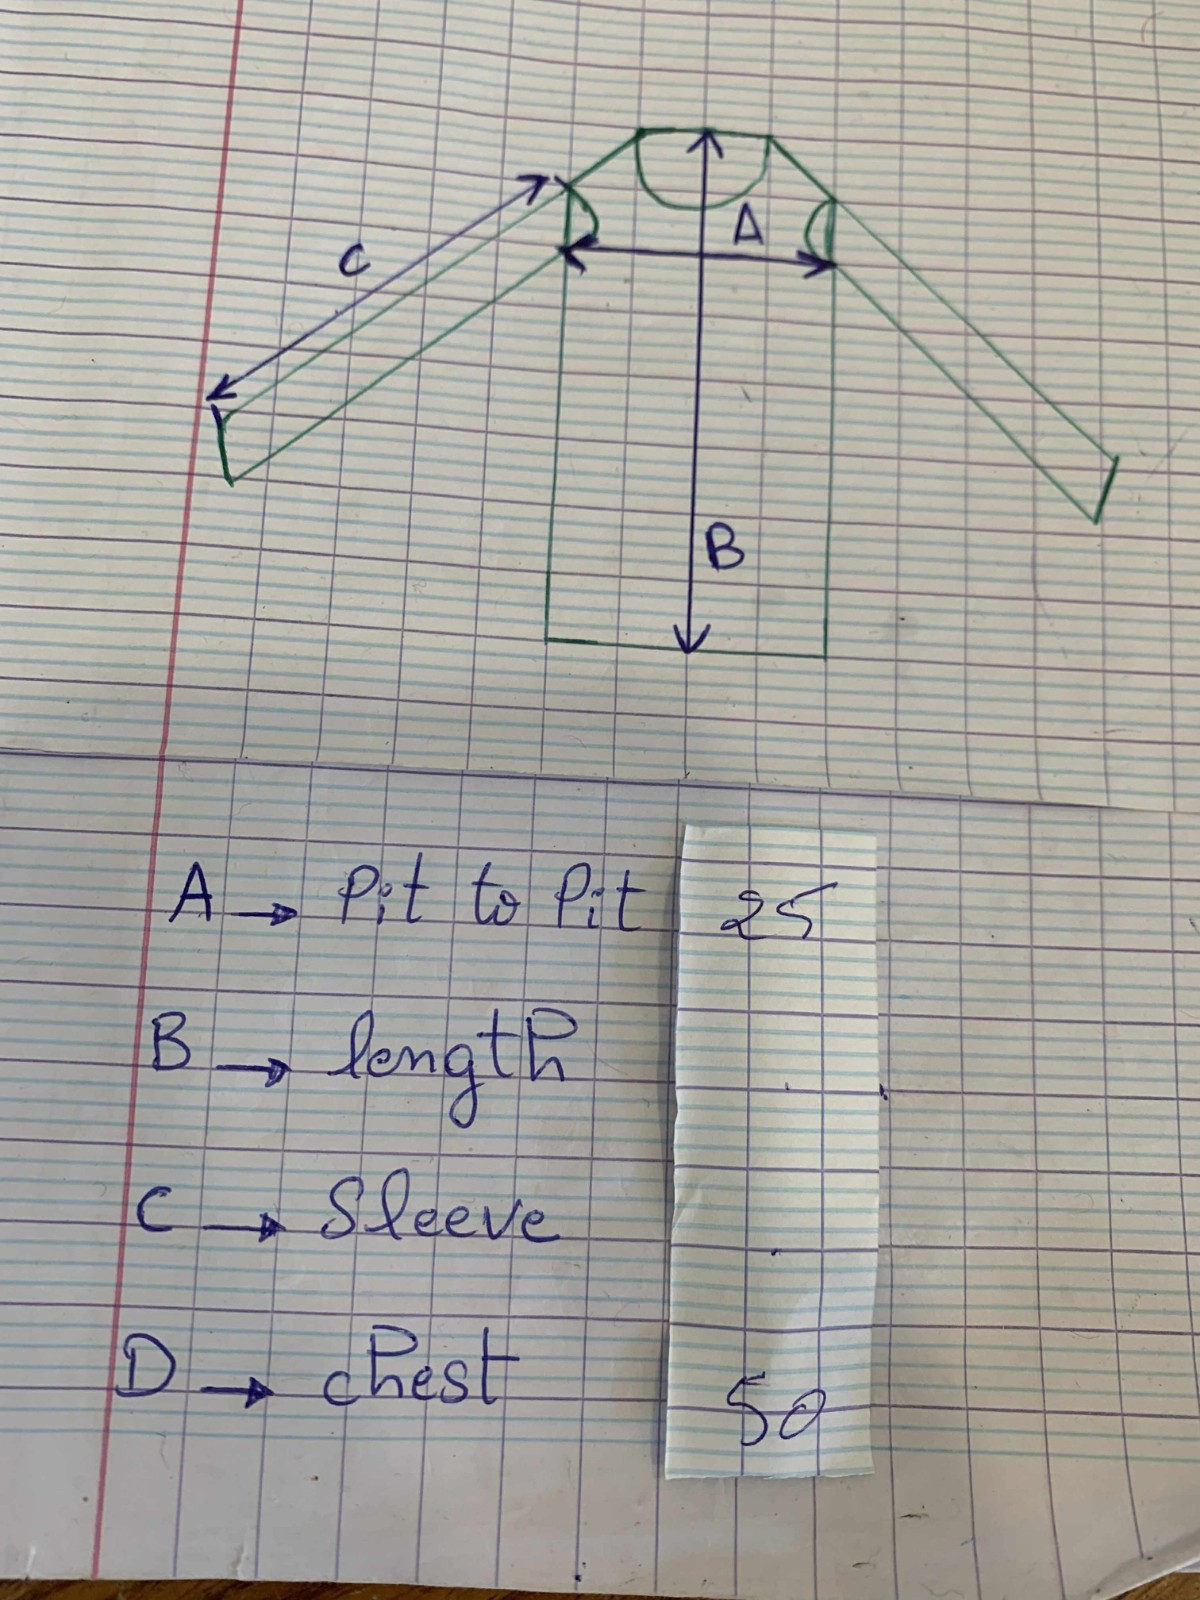 C
A
B
A → Pit to Pit 25
B → length
C → Sleeve
D → chest 50